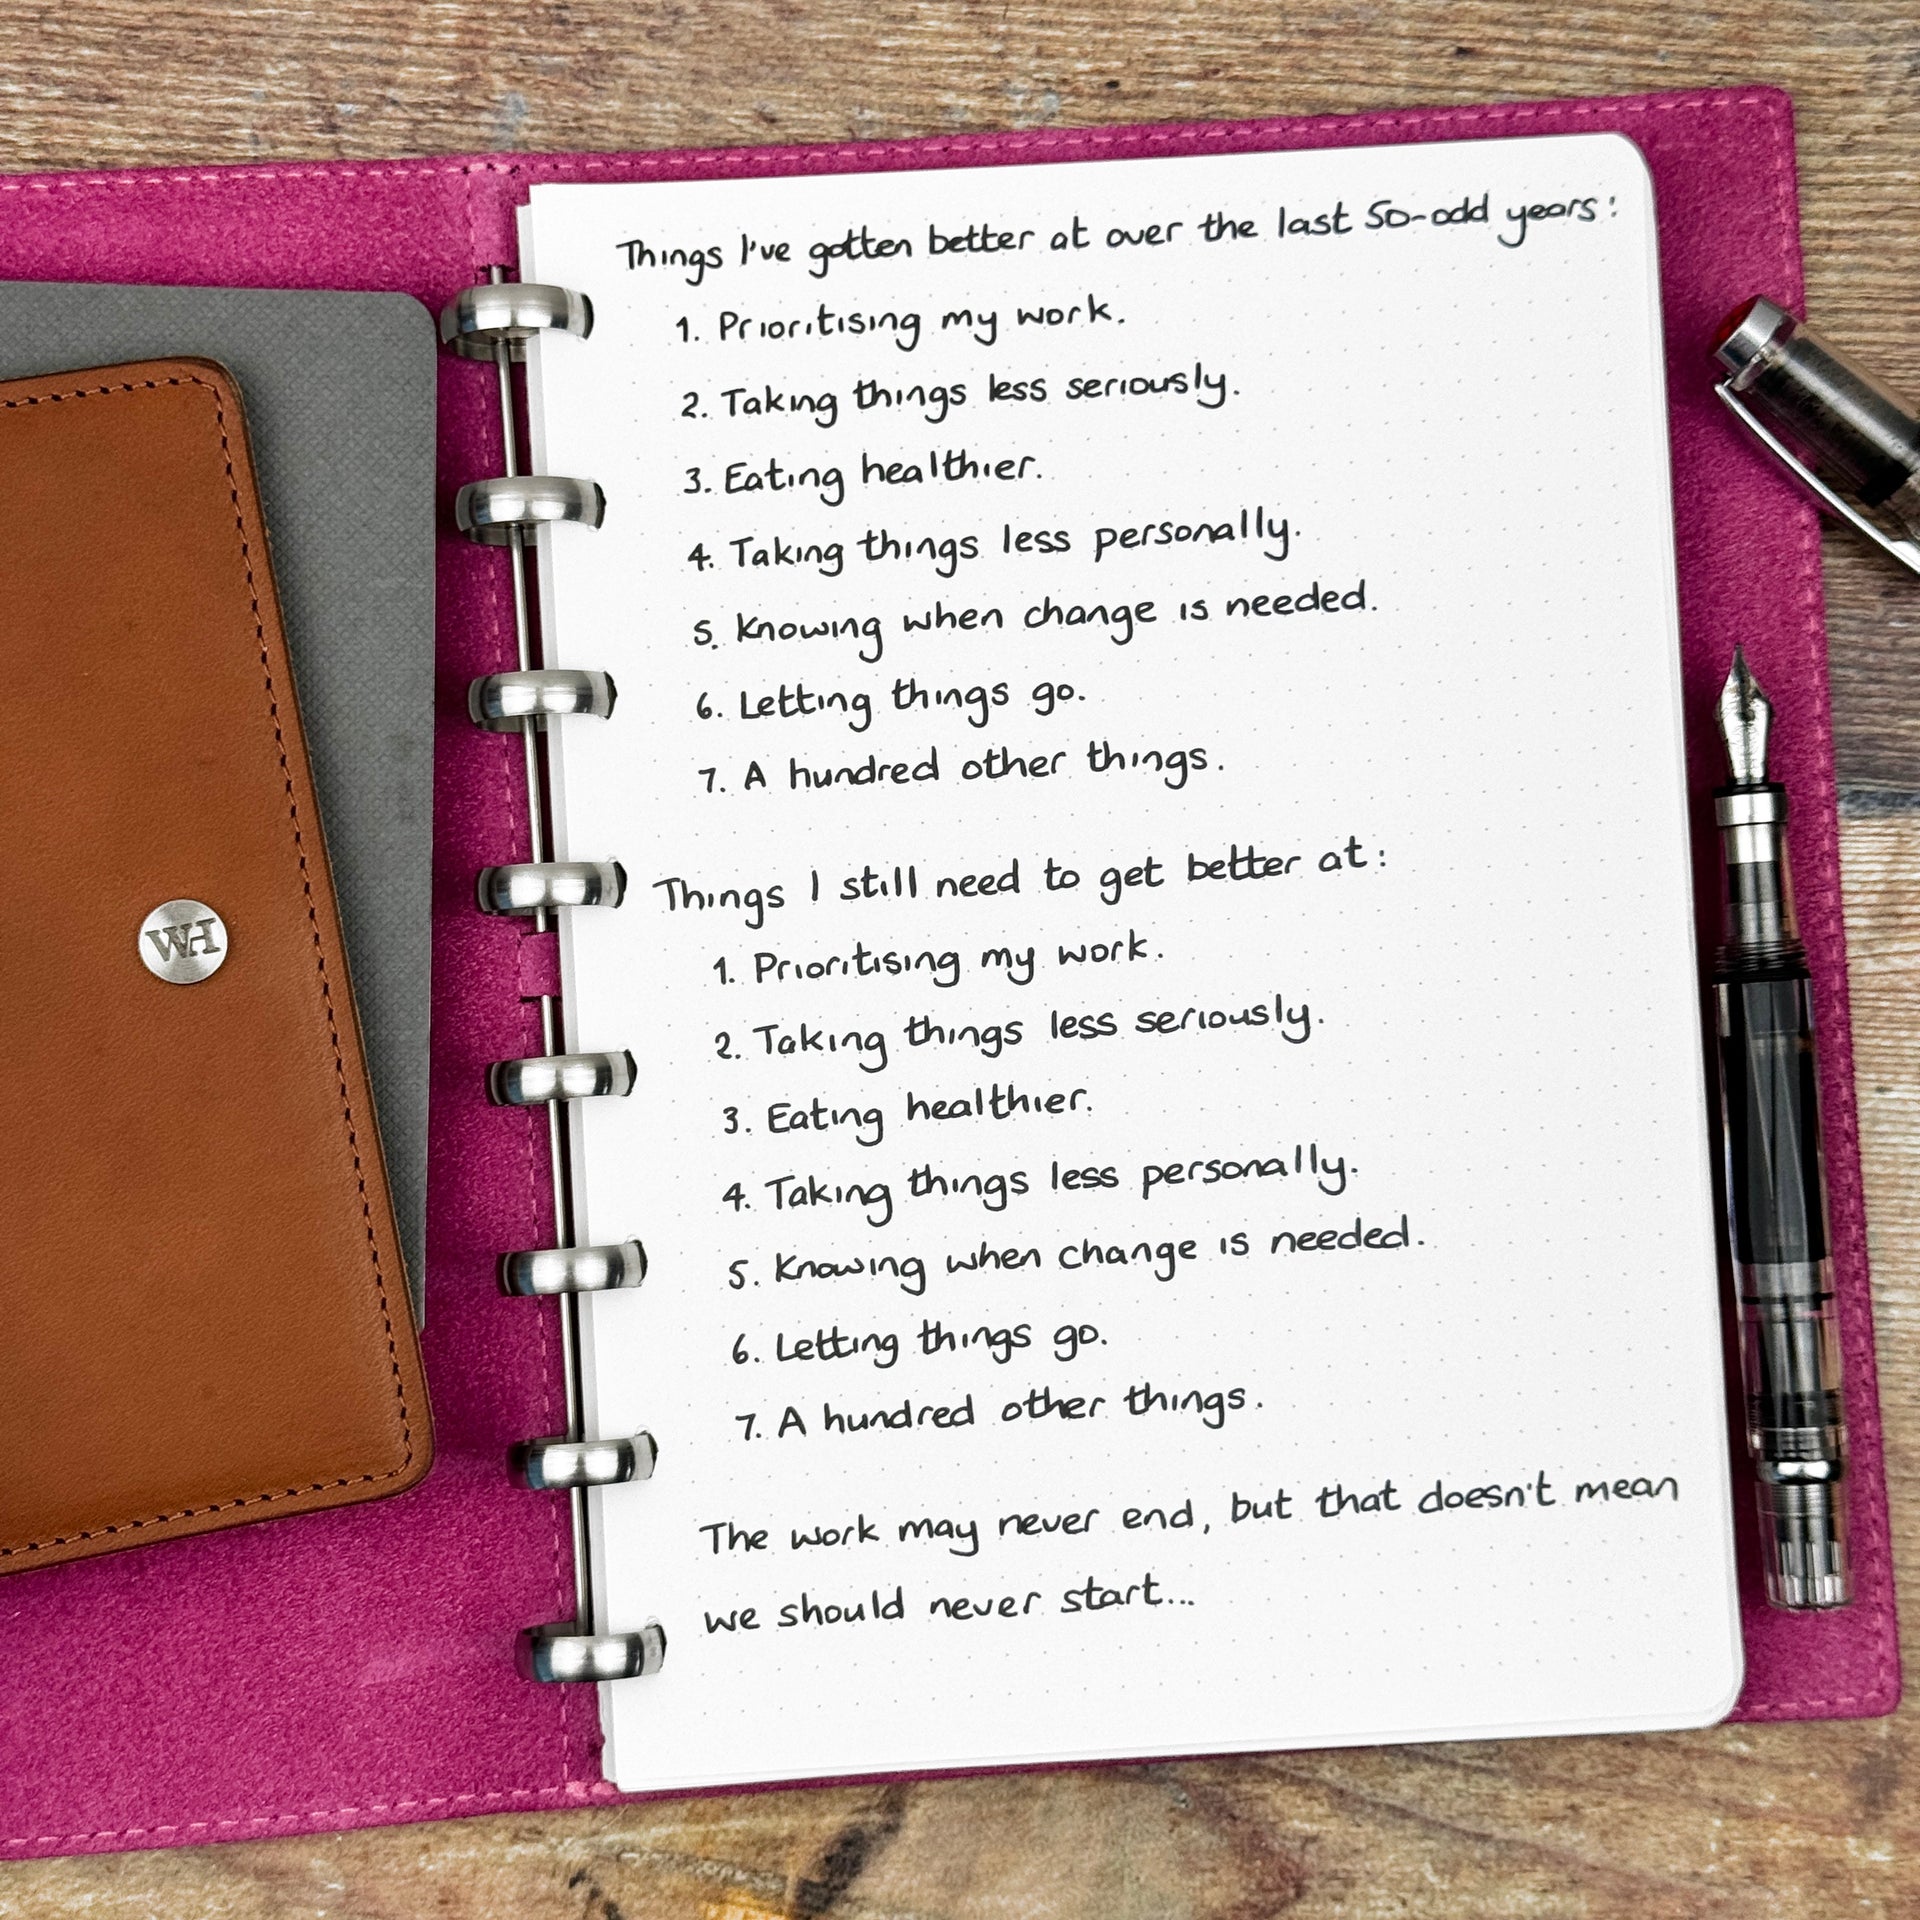 Things I've gotten better at over the last 50-odd years:
1. Prioritising my work.
2. Taking things less seriously.
3. Eating healthier.
4. Taking things less personally.
5. Knowing when change is needed.
6. Letting things go.
7. A hundred other things.
Things I still need to get better at:
1. Prioritising my work.
2. Taking things less seriously.
3. Eating healthier.
4. Taking things less personally.
5. Knowing when change is needed.
6. Letting things go.
7. A hundred other things.
The work may never end, but that doesn't mean
we should never start...
WH